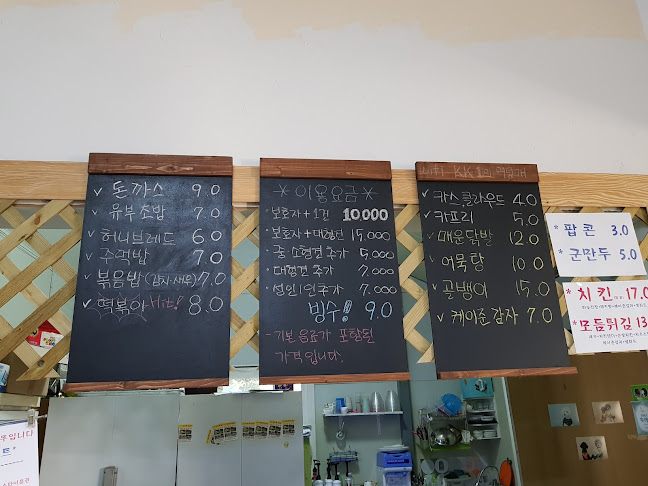 돈까스 9.0
유부초밥 7.0
허니브레드 6.0
주먹밥 7.0
볶음밥(김치·새우) 7.0
떡볶이 Hit! 8.0
*이용요금*
보호자+1견 10,000
보호자+대형견 15,000
중·소형견 추가 5,000
대형견 추가 7,000
성인1인추가 7,000
빙수! 9.0
-기본 음료가 포함된
가격입니다.
wifi KK
카스클라우드 4.0
카프리 5.0
매운닭발 12.0
어묵탕 10.0
골뱅이 15.0
케이준감자 7.0
*팝콘 3.0
*군만두 5.0
*치킨 17.0
*모듬튀김 13